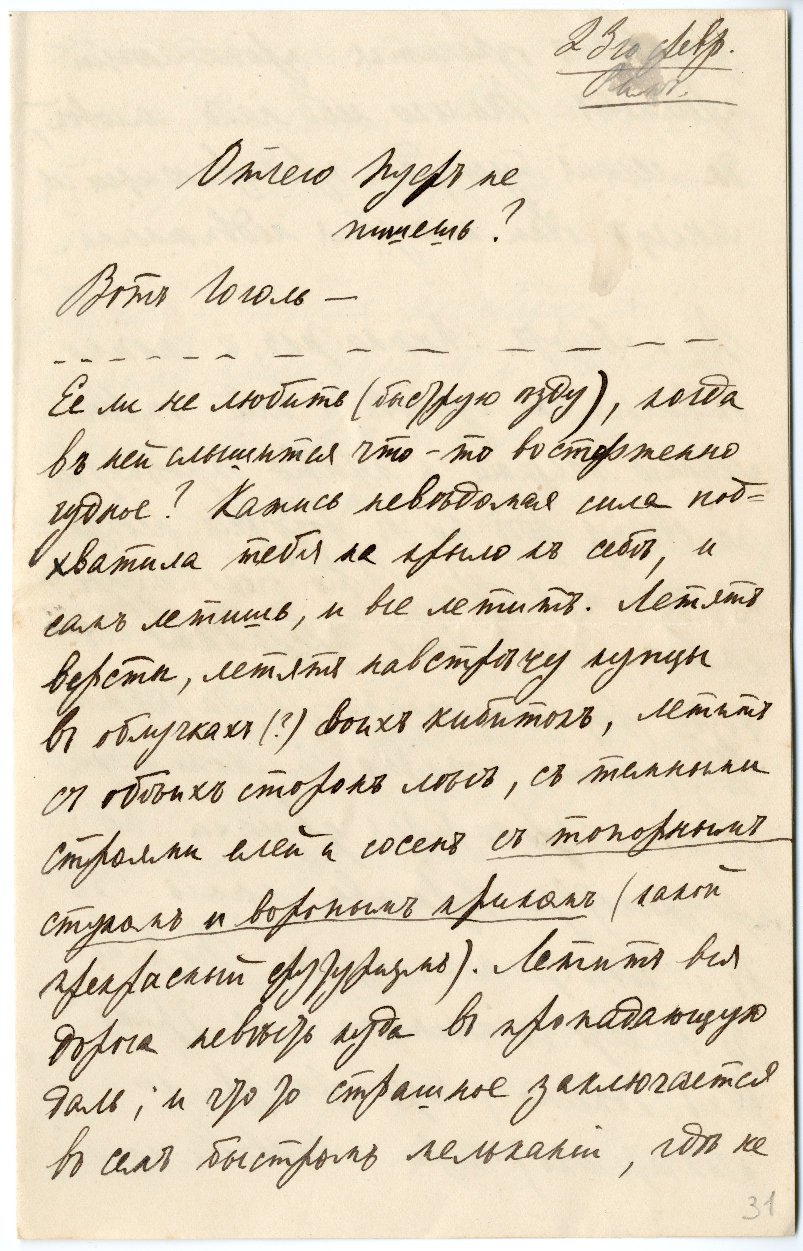 23го февр.
Отчего Пусръ не
пишешь?
Вотъ Гоголь —
Ее ли не любить (быструю ѣзду), когда
въ ней слышится что-то восторженно
чудное? Кажись невѣдомая сила под=
хватила тебя на крыло къ себѣ, и
самъ летишь, и все летитъ. Летятъ
версты, летятъ навстрѣчу купцы
въ облучкахъ (?) своихъ кибитокъ, летитъ
съ обѣихъ сторонъ лѣсъ, съ темными
строями елей и сосенъ съ топорнымъ
стукомъ и вороньимъ крикомъ (какой
прекрасный футуризмъ). Летитъ вся
дорога невѣсть куда въ пропадающую
даль; и что то страшное заключается
въ семъ быстромъ мельканіи, гдѣ не
31